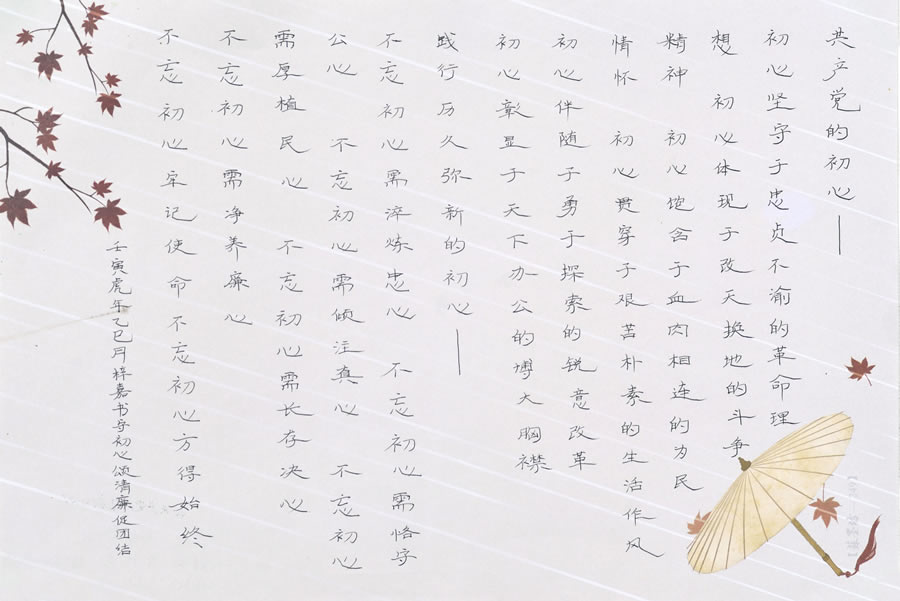 共产党的初心——
初心坚守于忠贞不渝的革命理
想 初心体现于改天换地的斗争
精神 初心饱含于血肉相连的为民
情怀 初心贯穿于艰苦朴素的生活作风
初心伴随于勇于探索的锐意改革
初心彰显于天下为公的博大胸襟
践行历久弥新的初心——
不忘初心需淬炼忠心 不忘初心需恪守
公心 不忘初心需倾注真心 不忘初心
需厚植民心 不忘初心需长存决心
不忘初心需净养廉心
不忘初心牢记使命不忘初心方得始终
壬寅虎年乙巳月梓嘉书守初心颂清廉促团结